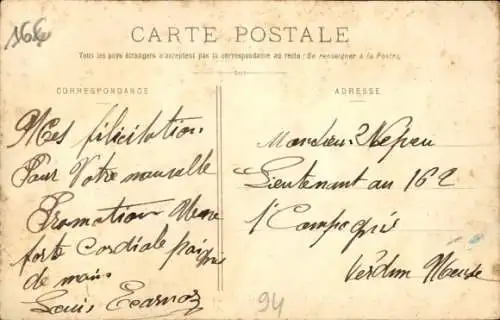 CARTE POSTALE
Tous les pays étrangers n'acceptent pas la correspondance au recto (Se renseigner à la Poste).
CORRESPONDANCE
Mes félicitation
Pour Votre nouvelle
Promotion Une
forte Cordiale poignée
de main
Louis
ADRESSE
Monsieur Népveu
Lieutenant au 162
1' Compagnie
Verdun Meuse
94